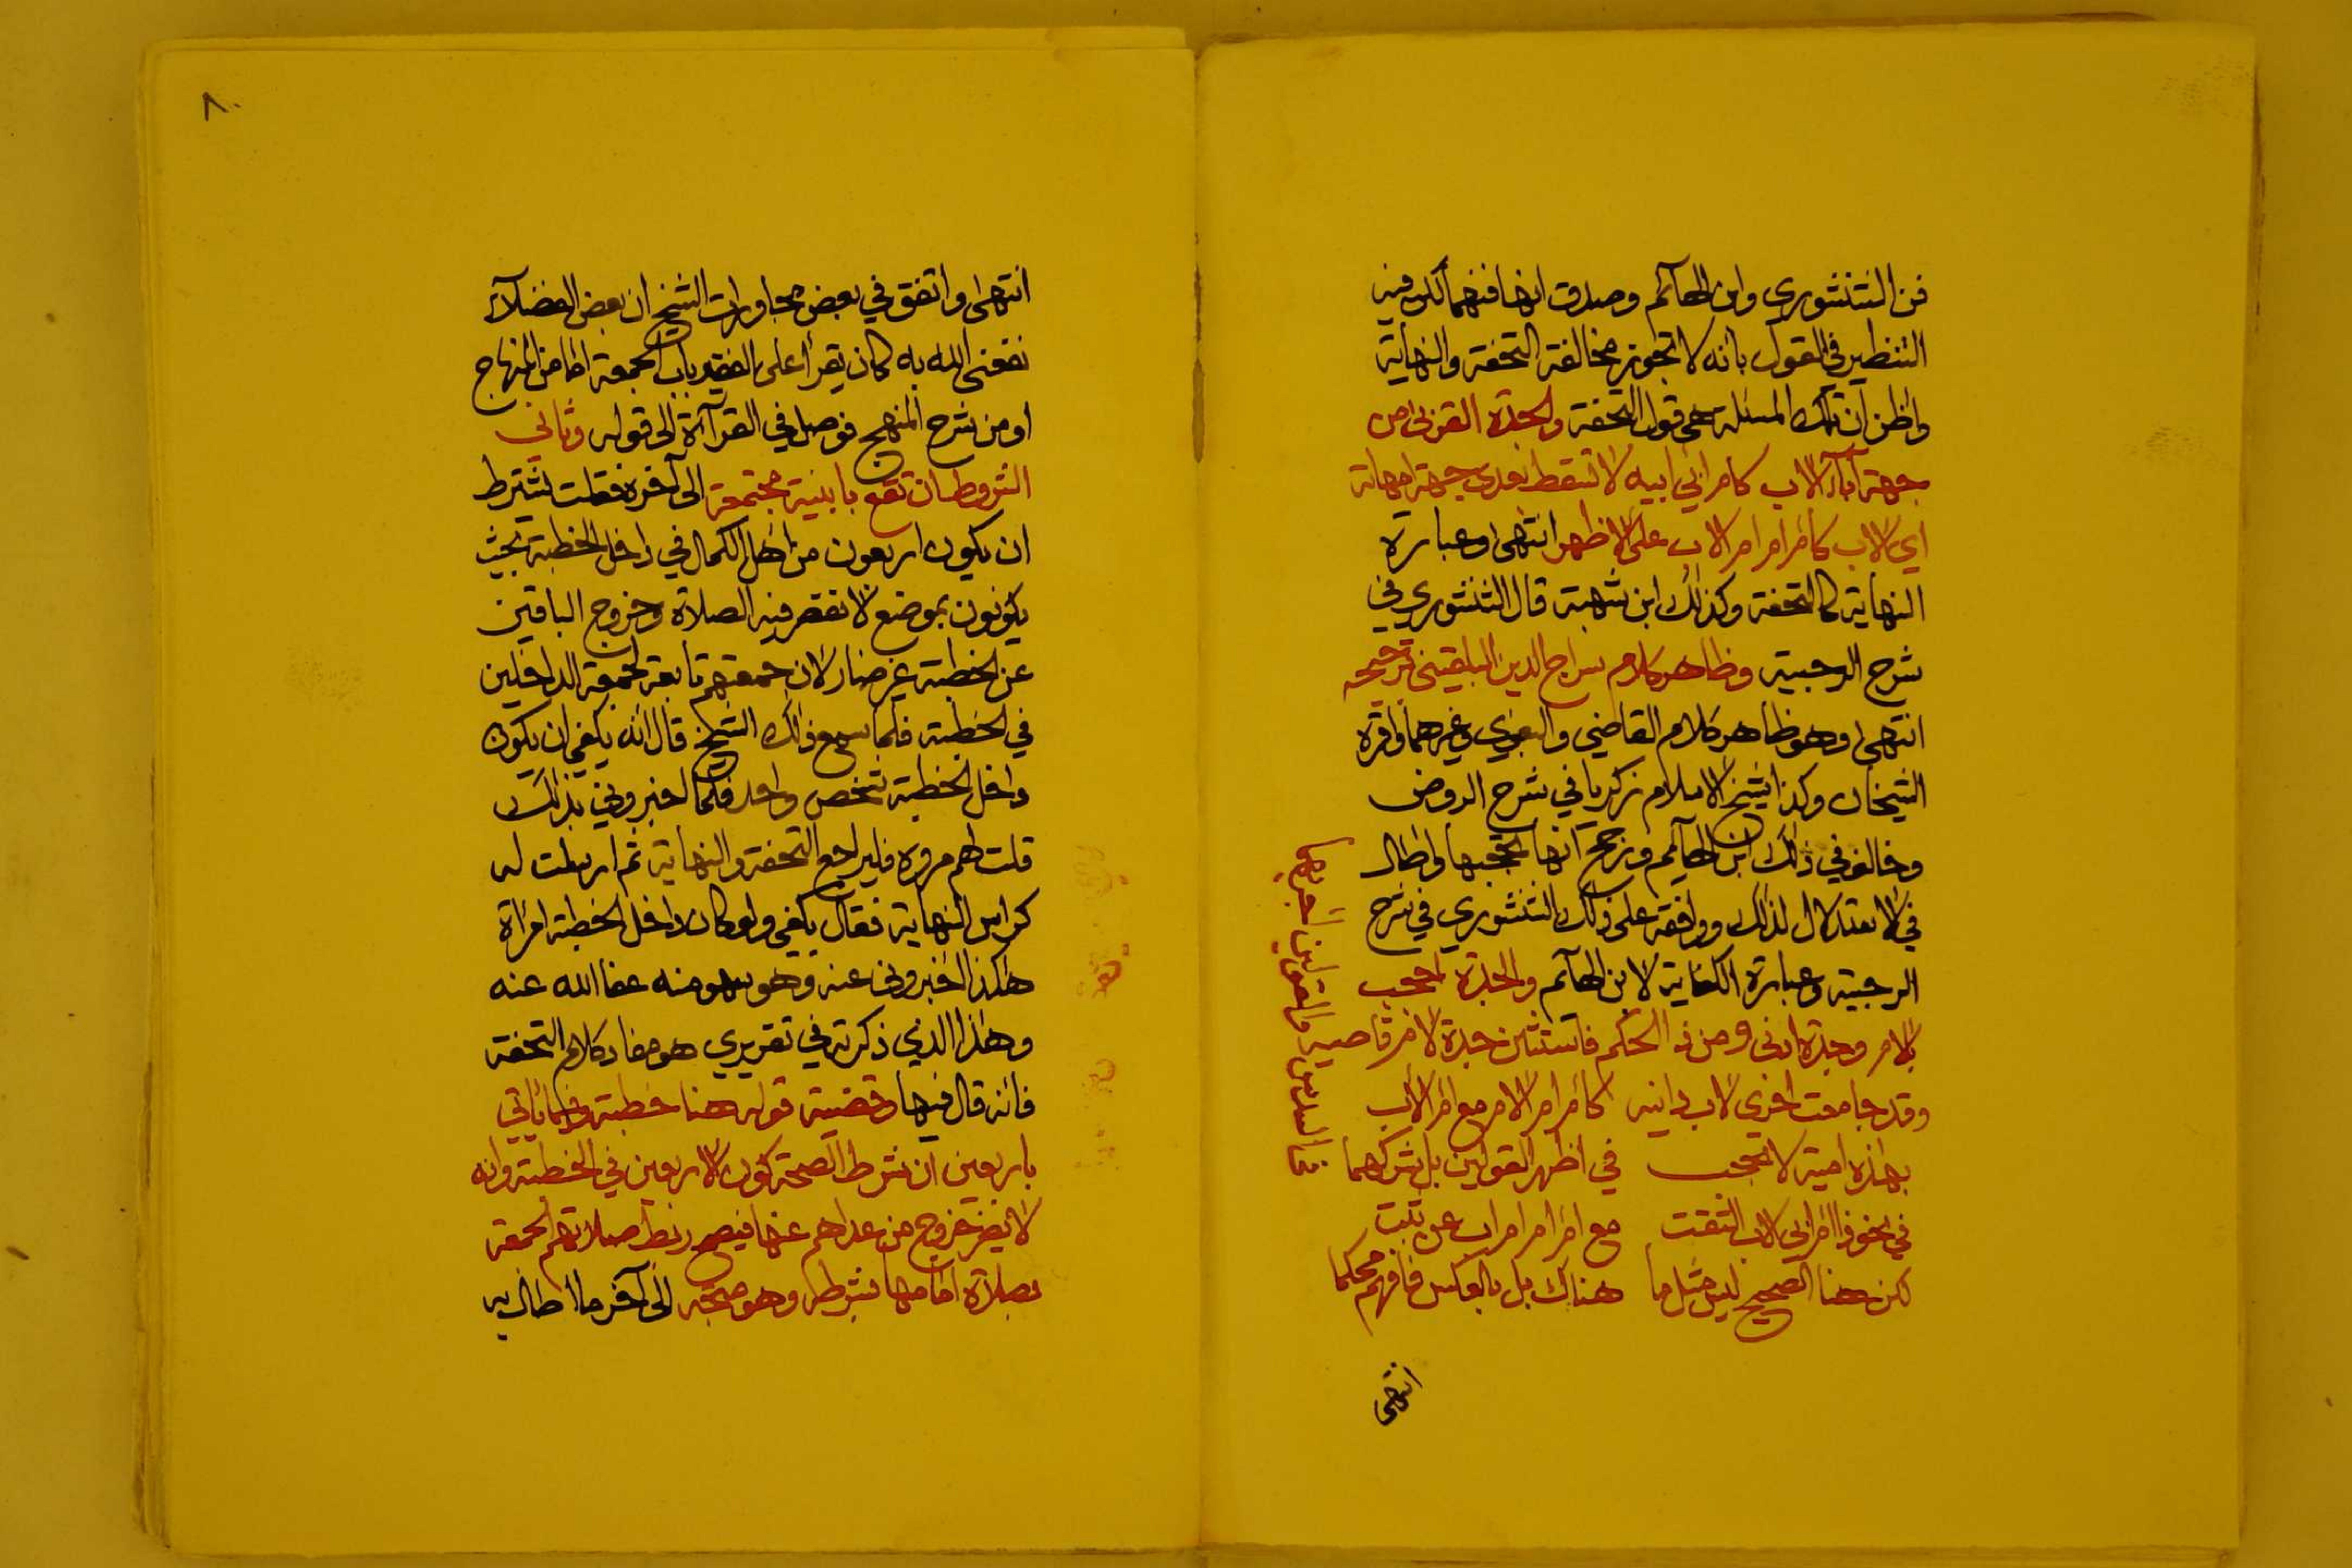 فن الشنشوري وابن الهآئم وصدق انها فنهما لكن فيه
التنظير في القول بانه لا تجوز مخالفة التحفة والنهاية
واظن ان تلك المسئلة هي قول التحفة والجدة القربى من
جهة آبآء الاب كام ابي ابيه لا تسقط بعدى جهة امهاته
اي الاب كام ام ام الاب على الاظهر انتهى وعبارة
النهاية كالتحفة وكذلك ابن شهبة قال الشنشوري في
شرح الرحبية وظاهر كلام سراج الدين البلقيني ترجيحه
انتهى وهو ظاهر كلام القاضي والبغوي وغيرهما واقره
الشيخان وكذا شيخ الاسلام زكريا في شرح الروض
وخالف في ذلك ابن الهآئم ورجح انها تحجبها واطال
في الاستدلال لذلك ووافقه على ذلك الشنشوري في شرح
الرحبية وعبارة الكفاية لابن الهآئم والجدة احجب
بالام وجدة ادنى ومن ذا الحكم فاستثنين جدة لام قاصيه
وقد جامعت اخرى لاب دانيه كام ام الام مع ام الاب
بهاذه امية لا تحجب في اظهر القولين بل شركهما
في نحو ذا ام ابي الاب التقت مع ام ام ام اب عن ثبت
لكن هنا الصحيح ليس مثل ما هناك بل بالعكس فافهم محكما
انتهى
٨٠
انتهى واتفق في بعض مجاورات الشيخ ان بعض الفضلآء
نفعني الله به كان يقرأ على الفقير باب الجمعة اما من المنهاج
او من شرح المنهج فوصل في القرآءة الى قوله وثاني
الشروط ان تقع بابنية مجتمعة الى آخره فقلت يشترط
ان يكون اربعون من اهل الكمال في داخل الخطبة بحيث
يكونون بموضع لا تقصر فيه الصلاة وخروج الباقين
عن الخطبة غير ضار لان جمعتهم تابعة لجمعة الداخلين
في الخطبة فلما سمع ذلك الشيخ قال انه يكفي ان يكون
داخل الخطبة شخص واحد فلما اخبروني بذلك
قلت لهم مروه فليراجع التحفة والنهاية ثم ارسلت له
كراس النهاية فقال يكفي ولو كان داخل الخطبة امرأة
هاكذا اخبروني عنه وهو سهو منه عفا الله عنه
وهذا الذي ذكرته في تقريري هو مفاد كلام التحفة
فانه قال فيها وقضية قوله هنا خطبة وفيما يأتي
باربعين ان شرط الصحة كون الاربعين في الخطبة وانه
لا يضر خروج من عداهم عنها فيصح ربط صلاتهم الجمعة
بصلاة امامها بشرطه وهو متجه الى آخر ما اطال به